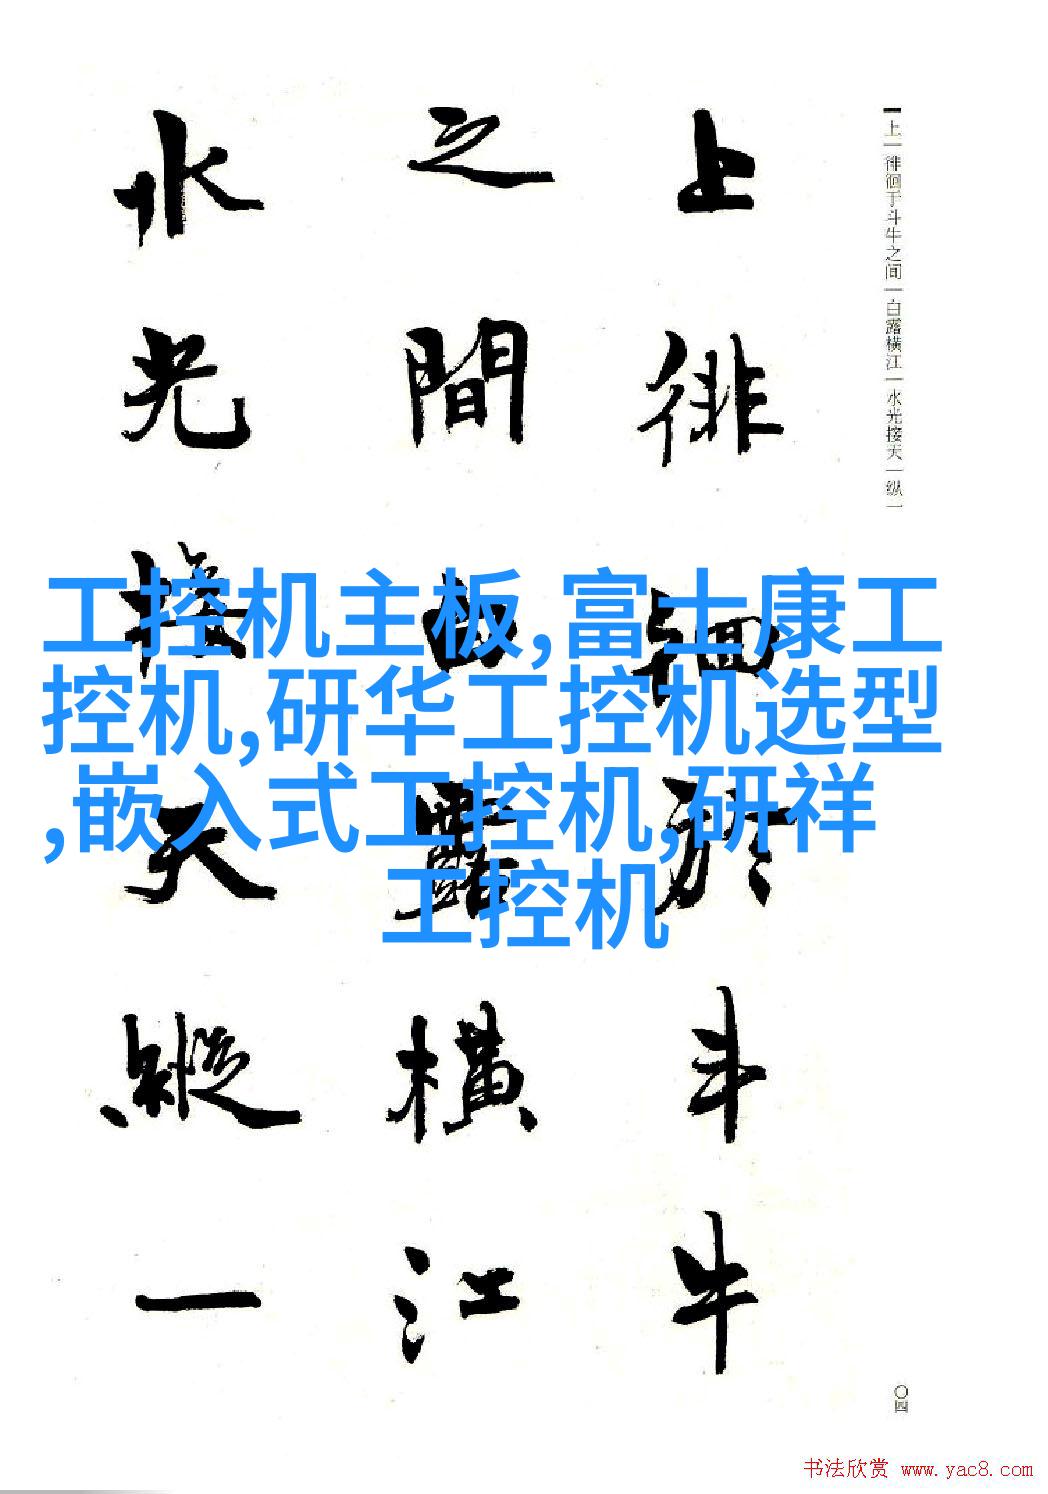 上徘徊於斗牛
之間白露橫江
水光接天縱一
上一徘徊于斗牛之间一白露横江一水光接天一纵一
工控机主板,富士康工
控机,研华工控机选型
,嵌入式工控机,研祥
工控机
〇四
书法欣赏 www.yac8.com